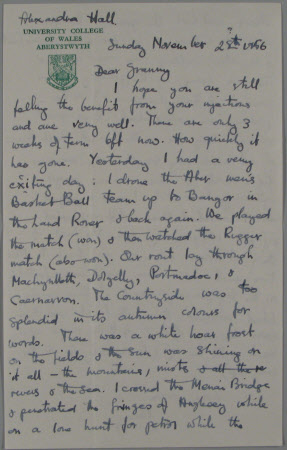 Alexandra Hall
UNIVERSITY COLLEGE
OF WALES
ABERYSTWYTH
Sunday November 25th 1956
Dear Granny
I hope you are still
feeling the benefit from your injections
and are very well. There are only 3
weeks of term left now. How quickly it
has gone. Yesterday I had a very
exiting day: I drove the Aber men's
Basket Ball team up to Bangor in
the Land Rover & back again. We played
the match (won) & then watched the Rugger
match (also won). Our rout lay through
Machynlleth, Dolgelly, Portmadoc, &
Caernarvon. The Countryside was too
splendid in its autumn colours for
words. There was a white hoar frost
on the fields & the Sun was shining on
it all – the mountains, mists & all the
rivers & the sea. I crossed the Menai Bridge
& penetrated the fringes of Anglesey while
on a lone hunt for petrol while the